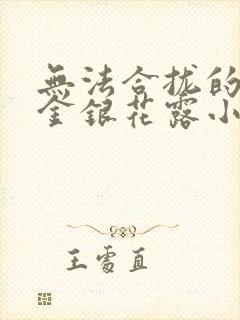 無法合拢的
金銀花露小
王雪直